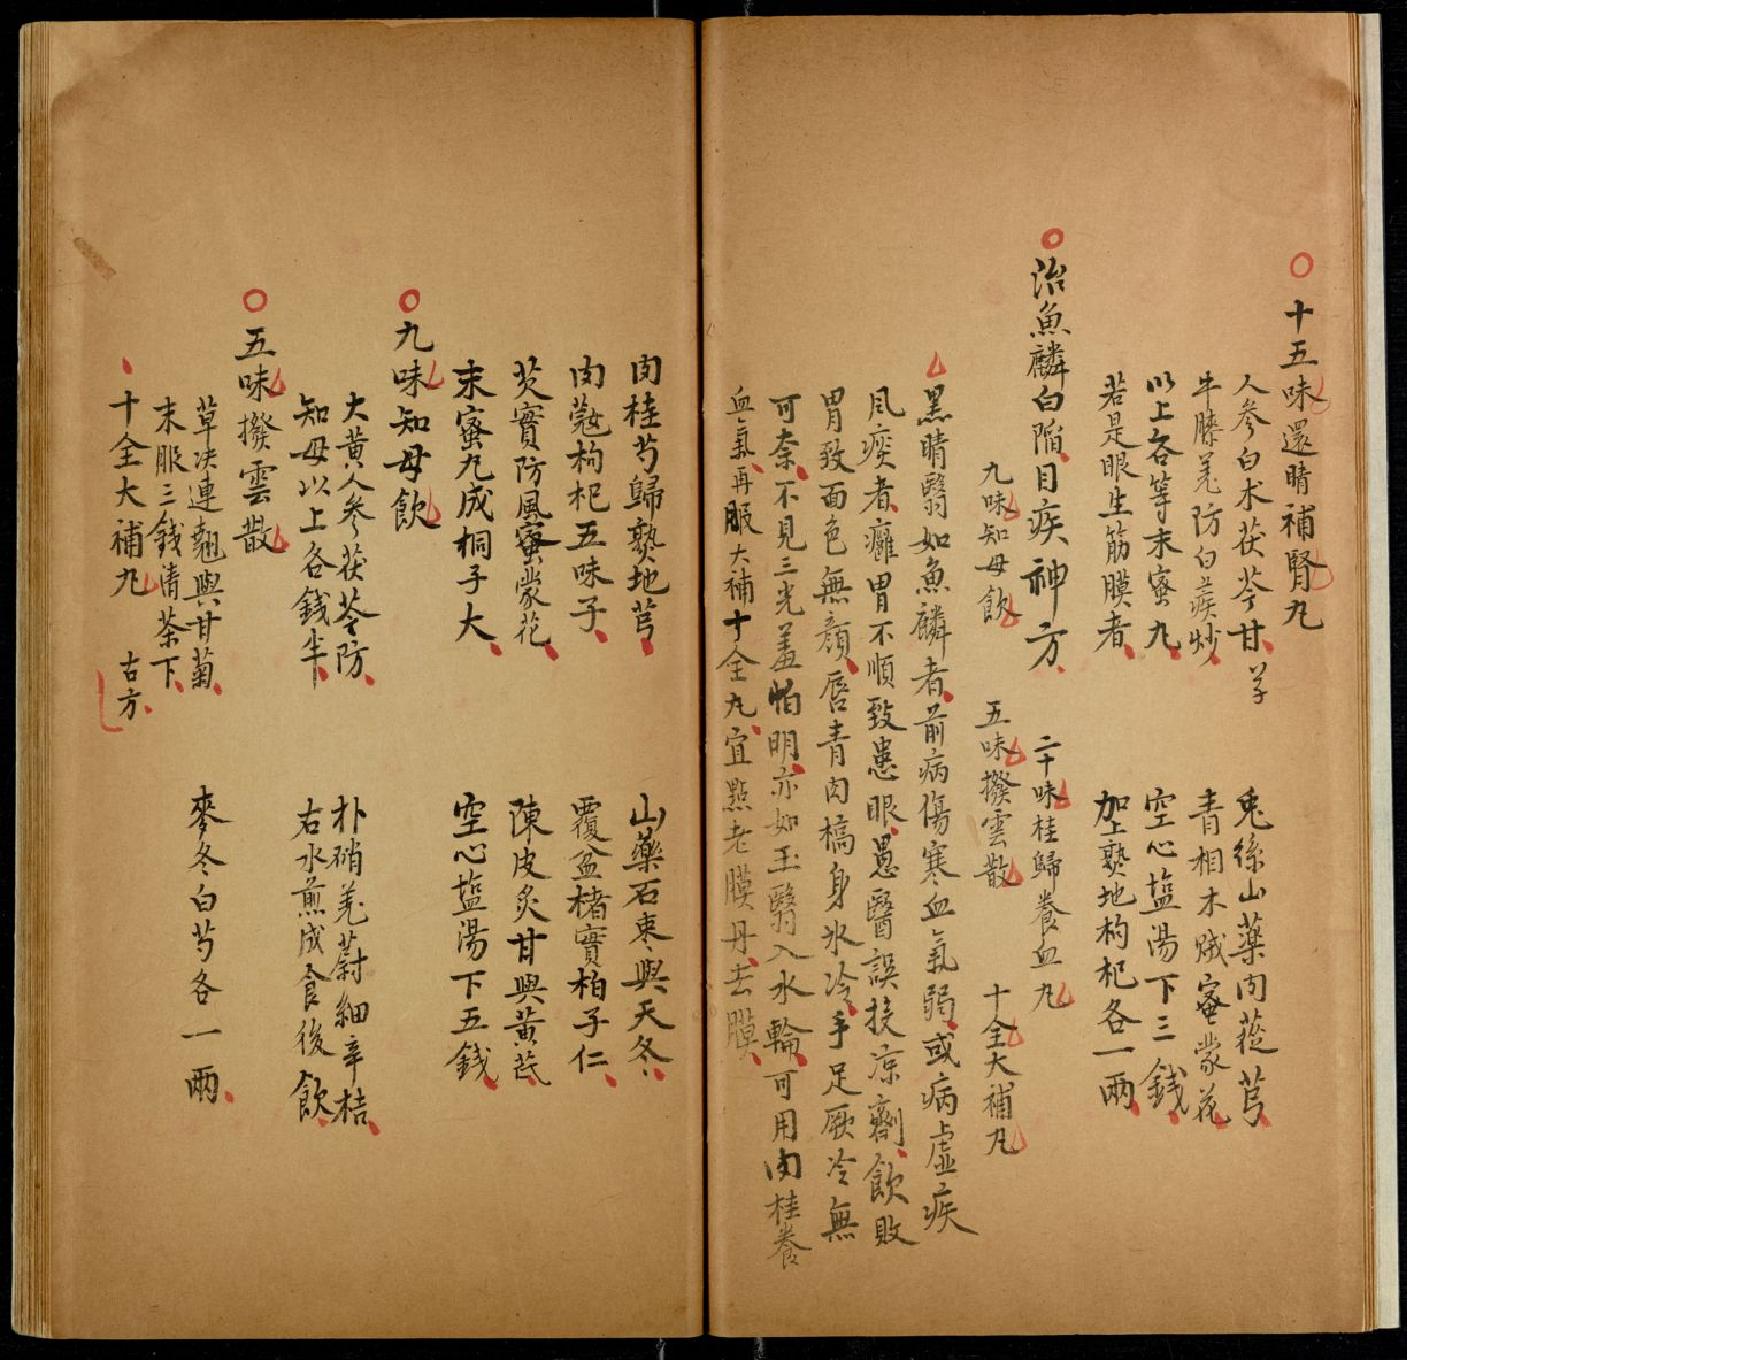 十五味還睛補腎九
人參白术茯苓甘草 兎絲山薬肉蓯芎
牛膝羌防白蒺炒 青相木賊蜜蒙花
以上各等末蜜九 空心塩湯下三錢
若是眼生筋膜者 加上熟地枸杞各一兩
治魚麟白陷目疾神方 二十味桂歸養血九
九味知母飲 五味撥雲散 十全大補九
黑睛翳如魚麟者前病傷寒血氣弱或病虛疾
風痰者癰胃不順致患眼愚醫誤投凉劑飲敗
胃致面色無顔唇青肉槁身氷冷手足厥冷無
可奈不見三光羞怕明亦如玉翳入水輪可用肉桂養
血氣再服大補十全九宜點老膜丹去膜
肉桂芍歸熟地芎 山藥石枣與天冬
肉蓯枸杞五味子 覆盆楮實柏子仁
芡實防風蜜蒙花 陳皮炙甘與黃芪
末蜜九成桐子大 空心塩湯下五錢
九味知母飲
大黃人參茯苓防 朴硝羌蔚細辛桔
知母以上各錢半 右水煎成食後飲
五味撥雲散
草决連翹與甘菊 麥冬白芍各一兩
末服三錢清茶下
十全大補九 古方